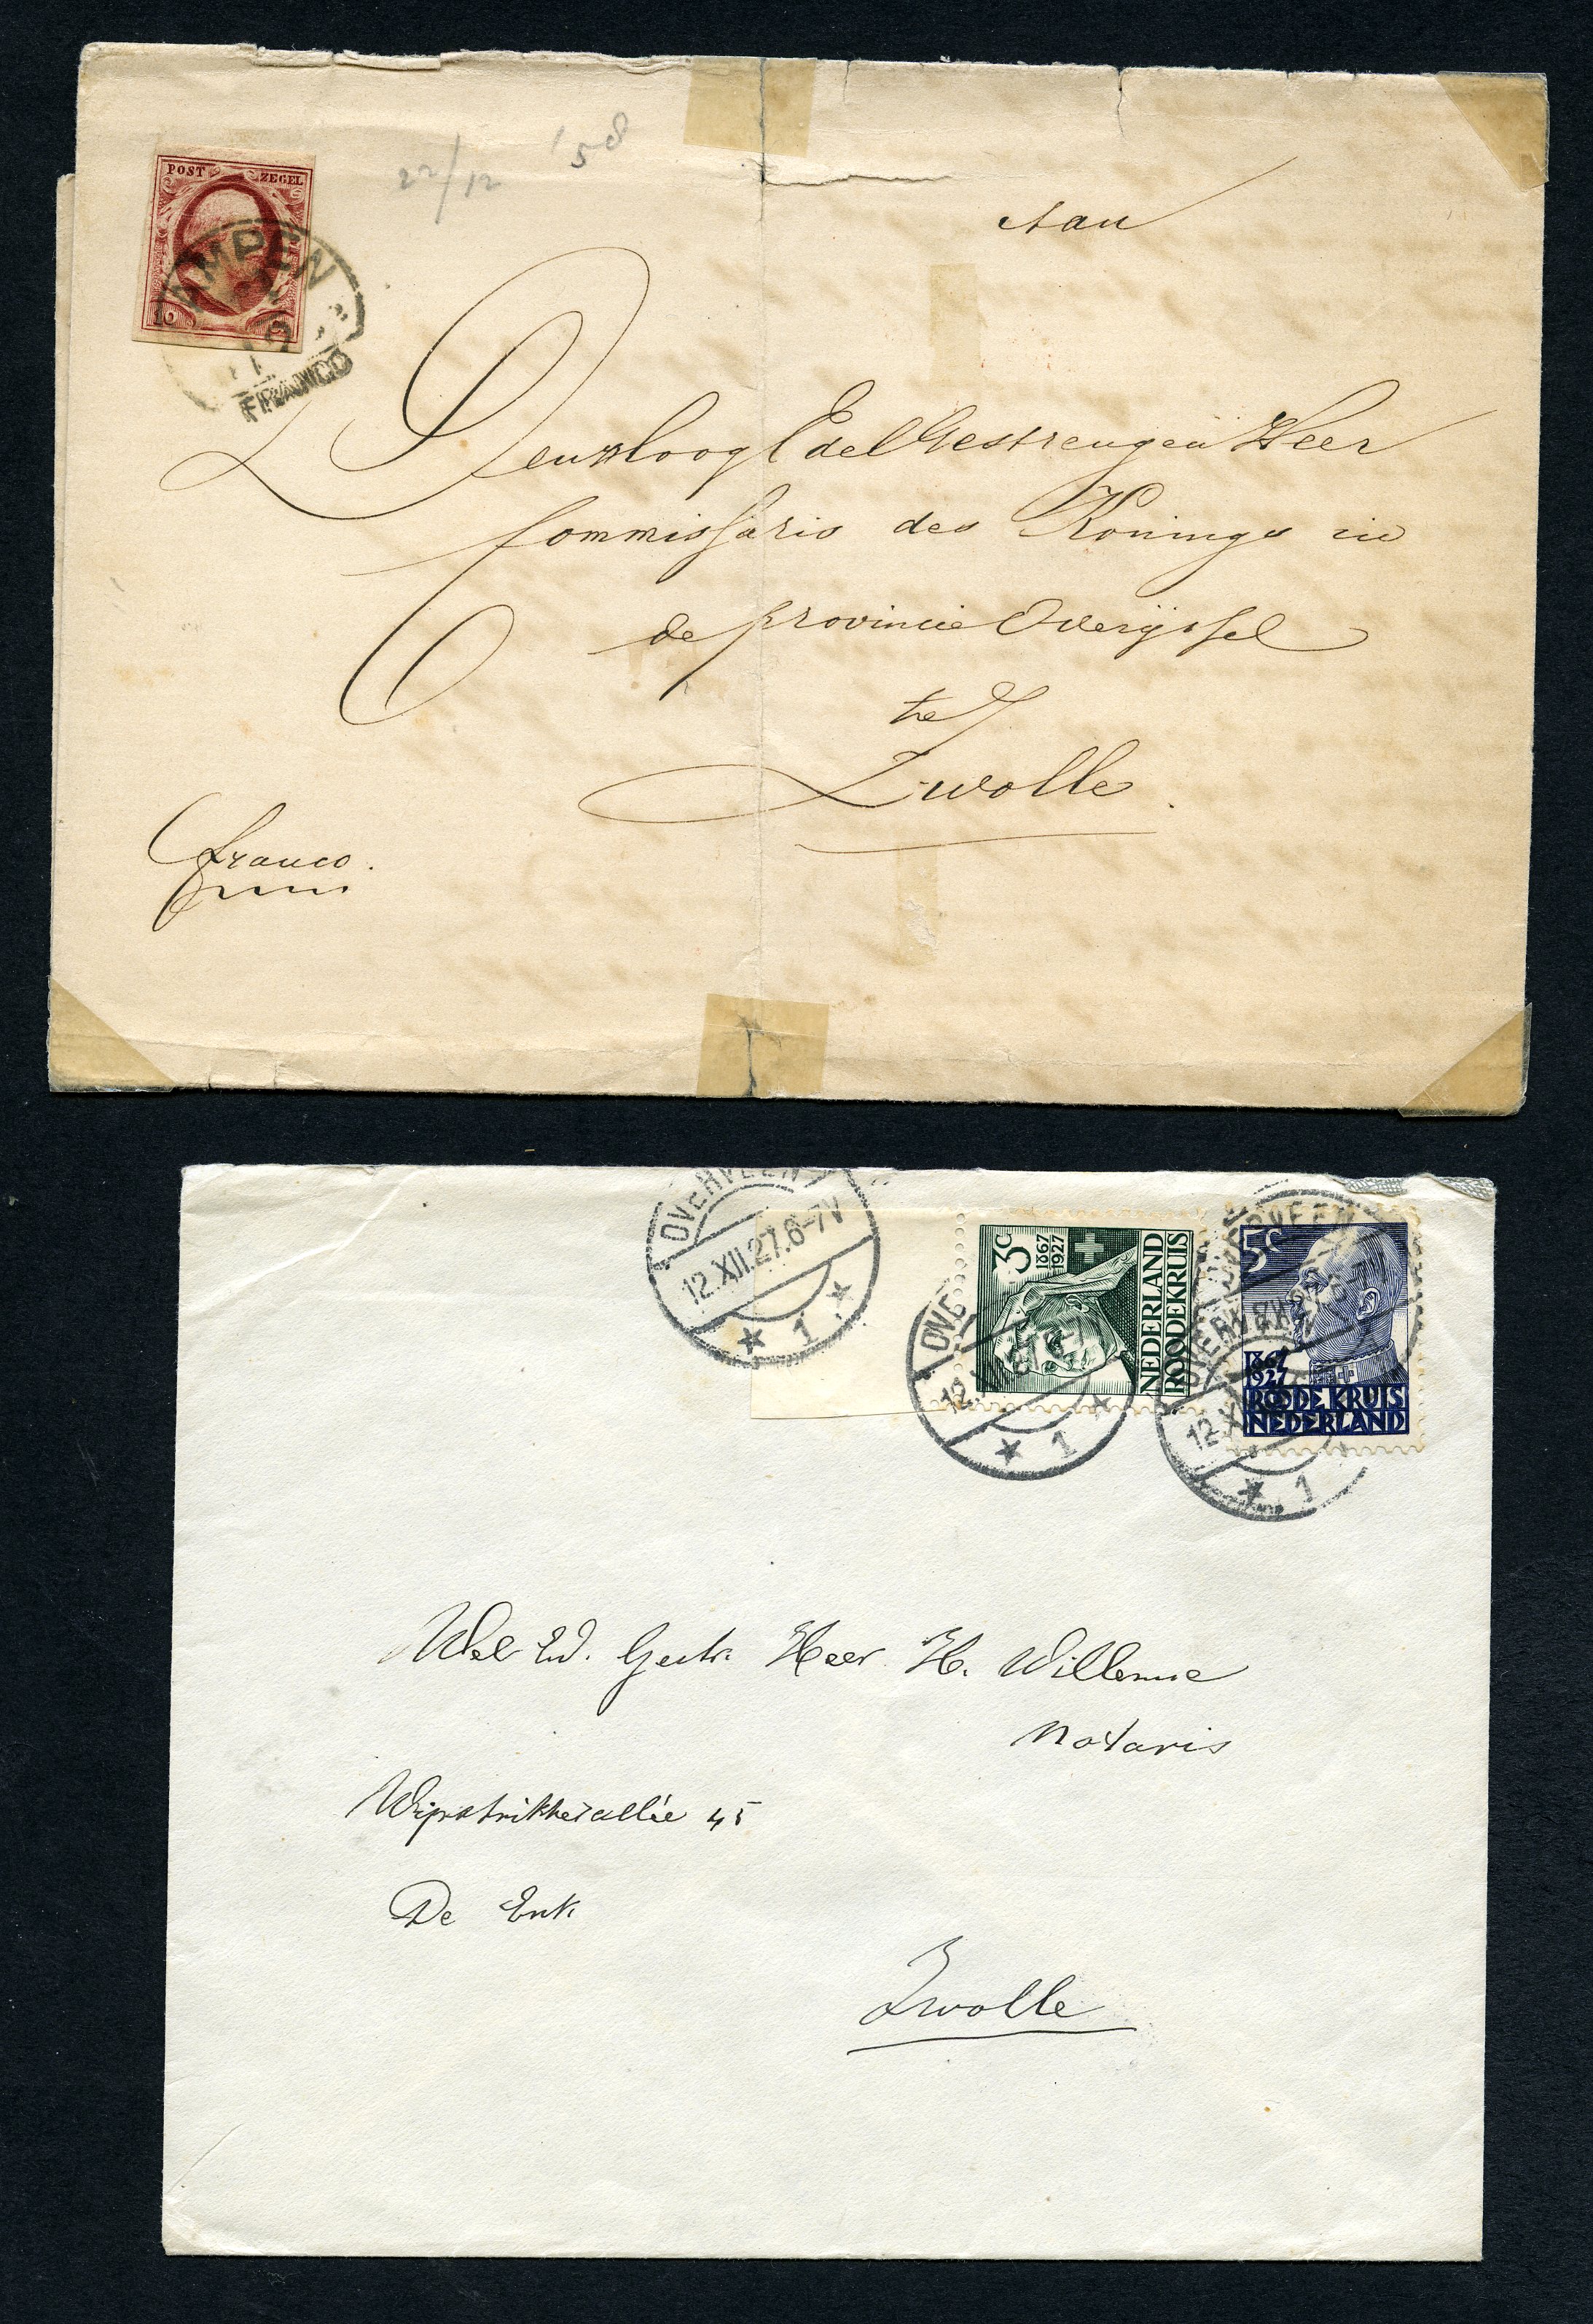 POST ZEGEL
22/12 '58
AMPEN
FRANCO
Aan
Den Hoog Edel Gestrengen Heer
Commissaris des Konings in
de provincie Overijssel
te
Zwolle.
franco.
OVERVEEN
12.XII.27.6-7V
1
3c
1867
1927
NEDERLAND
ROODEKRUIS
5c
1867
1927
ROODE KRUIS
NEDERLAND
OVERVEEN
1
1
Wel Ed. Gestr. Heer H. Willemse
Notaris
Wipstrikkerallée 45
De Enk
Zwolle